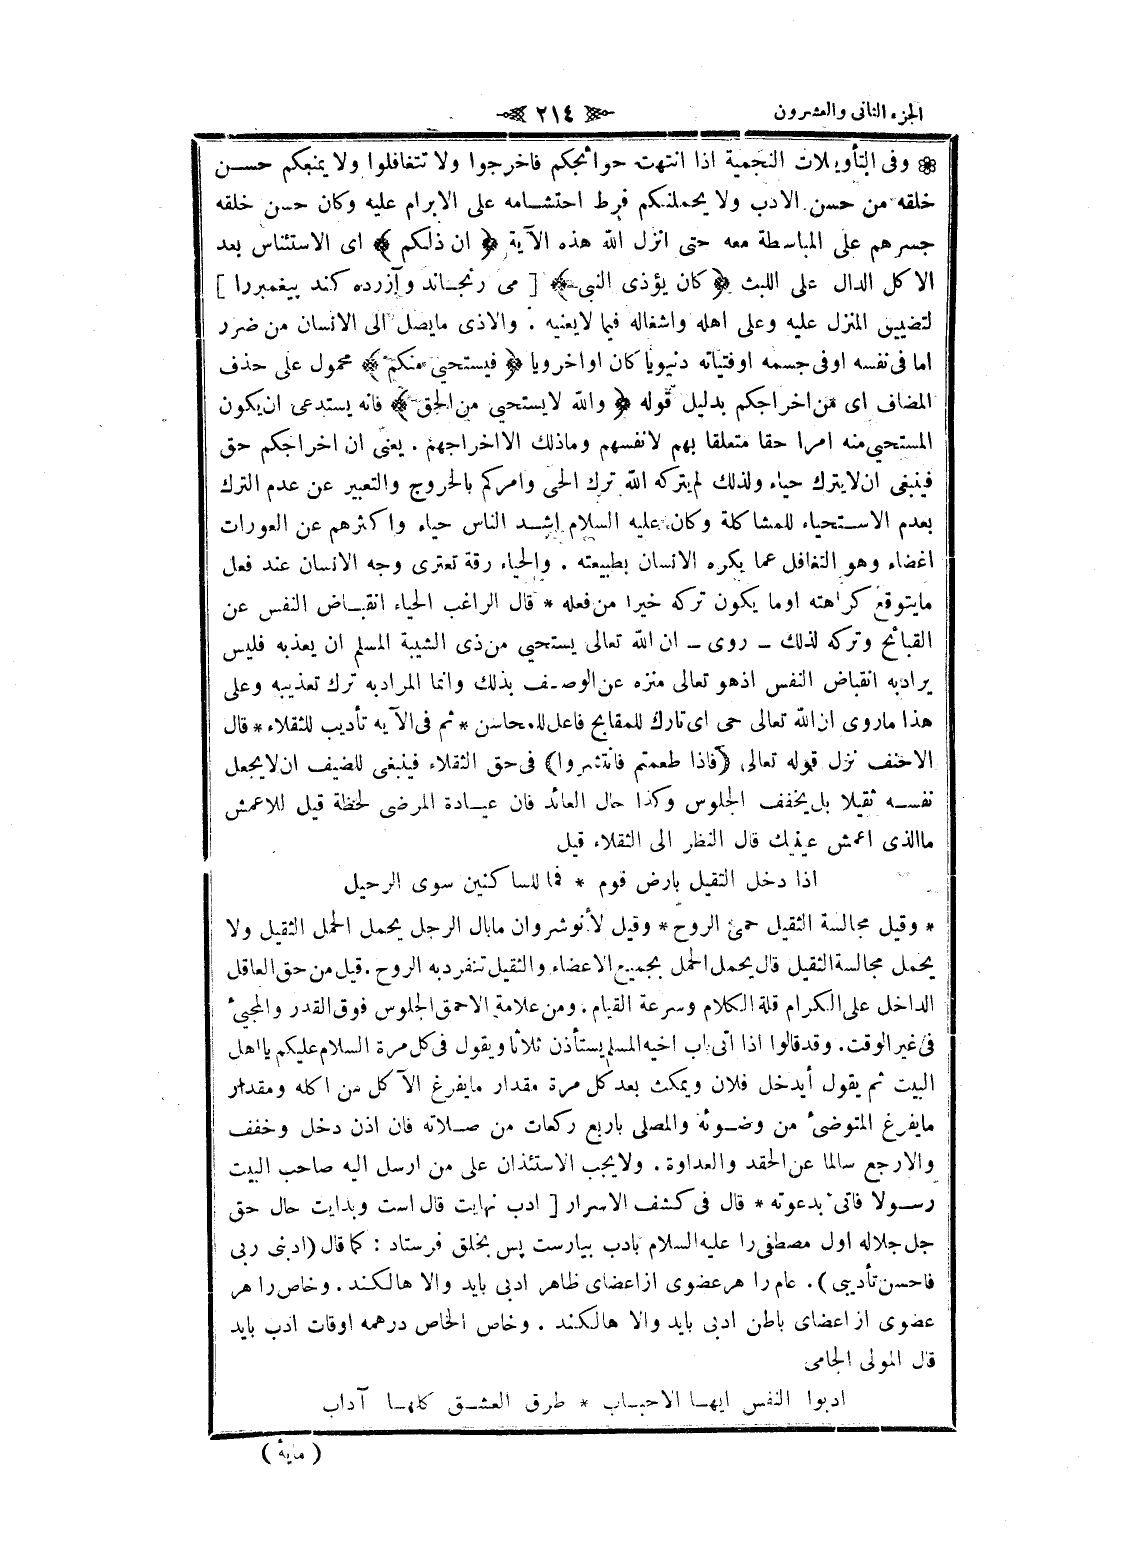 الجزء الثانى والعشرون
٢١٤
وفى التأويلات النجمية اذا انتهت حوائجكم فاخرجوا ولا تتغافلوا ولا يمنعكم حسن
خلقه من حسن الادب ولا يحملنكم فرط احتشامه على الابرام عليه وكان حسن خلقه
جسرهم على المباسطة معه حتى انزل الله هذه الآية ﴿ ان ذلكم ﴾ اى الاستئناس بعد
الاكل الدال على اللبث ﴿ كان يؤذى النبى ﴾ [ مى رنجاند وآزرده كند پيغمبررا ]
لتضييق المنزل عليه وعلى اهله واشغاله فيما لايعنيه . والاذى مايصل الى الانسان من ضرر
اما فى نفسه اوفى جسمه اوفتياته دنيويا كان او اخرويا ﴿ فيستحيى منكم ﴾ محمول على حذف
المضاف اى من اخراجكم بدليل قوله ﴿ والله لايستحيى من الحق ﴾ فانه يستدعى ان يكون
المستحيى منه امرا حقا متعلقا بهم لانفسهم وماذلك الا اخراجهم . يعنى ان اخراجكم حق
فينبغى ان لايترك حياء ولذلك لم يتركه الله ترك الحى وامركم بالخروج والتعبير عن عدم الترك
بعدم الاستحياء للمشاكلة وكان عليه السلام اشد الناس حياء واكثرهم عن العورات
اغضاء وهو التغافل عما يكره الانسان بطبيعته . والحياء رقة تعترى وجه الانسان عند فعل
مايتوقع كراهته اوما يكون تركه خيرا من فعله * قال الراغب الحياء انقباض النفس عن
القبائح وتركه لذلك ـ روى ـ ان الله تعالى يستحيى من ذى الشيبة المسلم ان يعذبه فليس
يراد به انقباض النفس اذهو تعالى منزه عن الوصف بذلك وانما المراد به ترك تعذيبه وعلى
هذا ماروى ان الله تعالى حى اى تارك للمقابح فاعل للمحاسن * ثم فى الآيه تأديب للثقلاء * قال
الاحنف نزل قوله تعالى (فاذا طعمتم فانتشروا) فى حق الثقلاء فينبغى للضيف ان لايجعل
نفسه ثقيلا بل يخفف الجلوس وكذا حال العائد فان عيادة المرضى لحظة قيل للاعمش
ماالذى اعمش عينيك قال النظر الى الثقلاء قيل
اذا دخل الثقيل بارض قوم * فما للساكنين سوى الرحيل
* وقيل مجالسة الثقيل حمى الروح * وقيل لأنوشروان مابال الرجل يحمل الحمل الثقيل ولا
يحمل مجالسة الثقيل قال يحمل الحمل بجميع الاعضاء والثقيل تنفرد به الروح . قيل من حق العاقل
الداخل على الكرام قلة الكلام وسرعة القيام . ومن علامة الاحمق الجلوس فوق القدر والمجيئ
فى غير الوقت . وقد قالوا اذا اتى باب اخيه المسلم يستأذن ثلاثا ويقول فى كل مرة السلام عليكم يااهل
البيت ثم يقول أيدخل فلان ويمكث بعد كل مرة مقدار مايفرغ الآكل من اكله ومقدار
مايفرغ المتوضئ من وضوئه والمصلى باربع ركعات من صلاته فان اذن دخل وخفف
والا رجع سالما عن الحقد والعداوة . ولا يجب الاستئذان على من ارسل اليه صاحب البيت
رسولا فاتى بدعوته * قال فى كشف الاسرار [ ادب نهايت قال است وبدايت حال حق
جل جلاله اول مصطفى را عليه السلام بادب بياراست پس بخلق فرستاد : كما قال (ادبنى ربى
فاحسن تأديبى) . عام را هر عضوى از اعضاى ظاهر ادبى بايد والا هالكند . وخاص را هر
عضوى از اعضاى باطن ادبى بايد والا هالكند . وخاص الخاص درهمه اوقات ادب بايد
قال المولى الجامى
ادبوا النفس ايها الاحباب * طرق العشق كلها آداب
( مايهٔ )